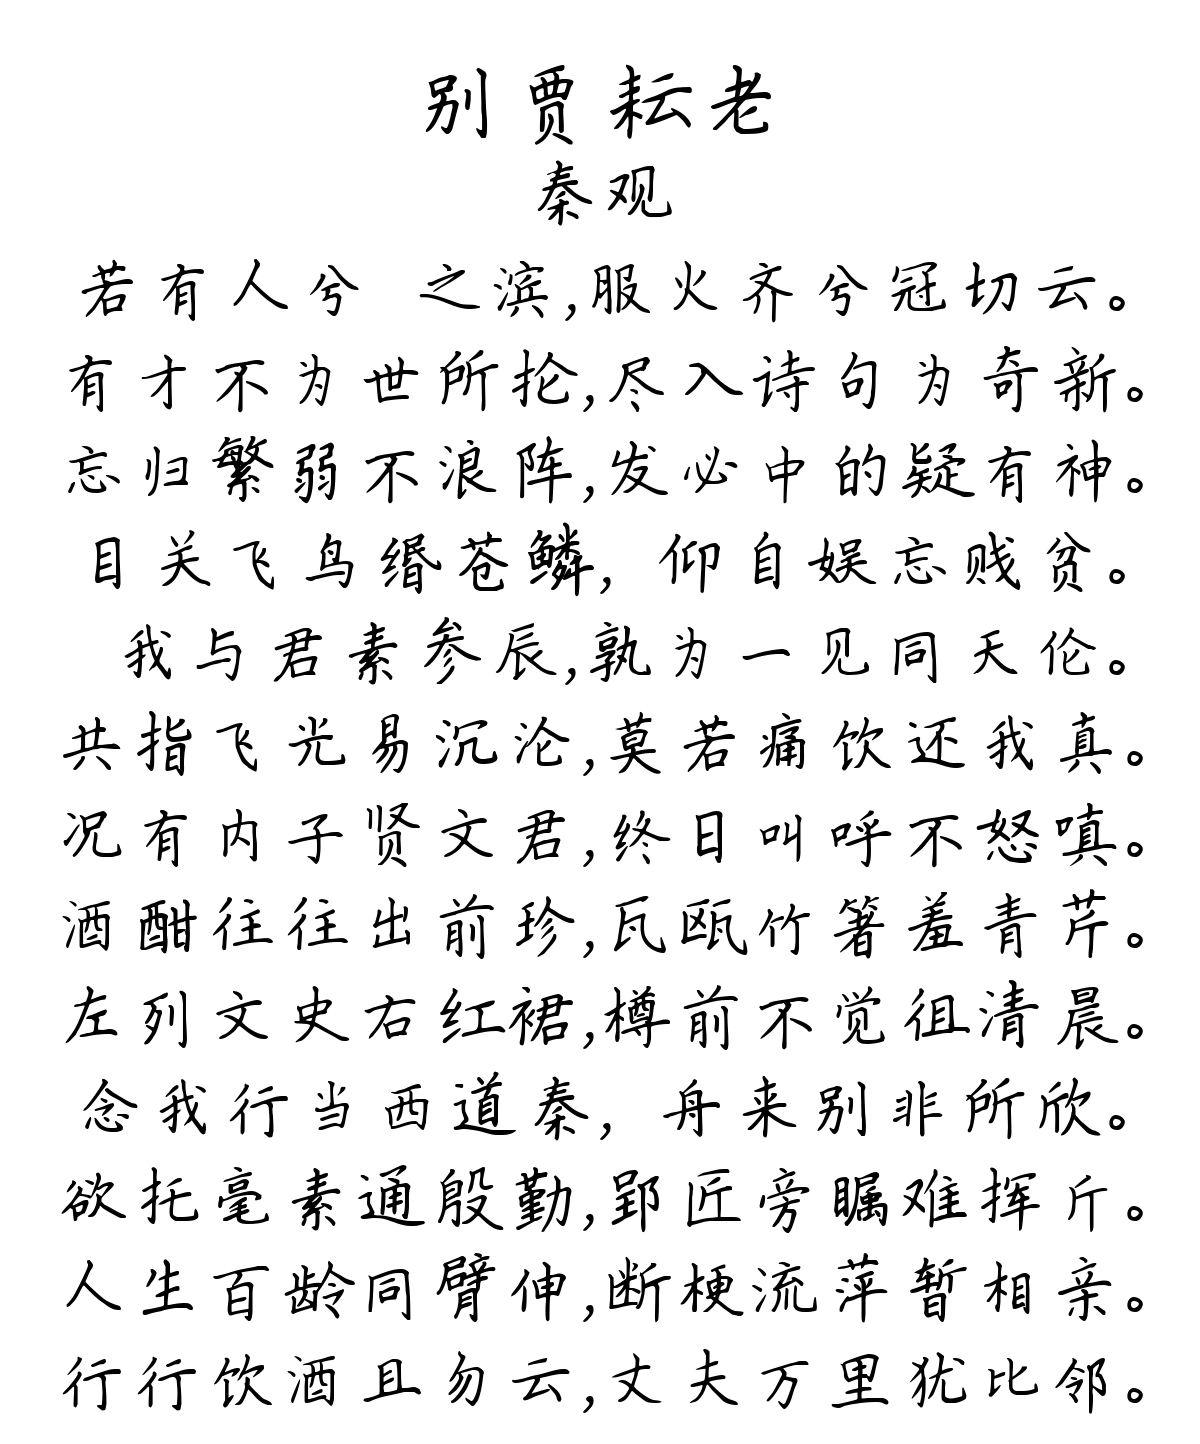 别贾耘老
秦观
若有人兮 之滨,服火齐兮冠切云。
有才不为世所抡,尽入诗句为奇新。
忘归繁弱不浪阵,发必中的疑有神。
目关飞鸟缗苍鳞，仰自娱忘贱贫。
我与君素参辰,孰为一见同天伦。
共指飞光易沉沦,莫若痛饮还我真。
况有内子贤文君,终日叫呼不怒嗔。
酒酣往往出前珍,瓦瓯竹箸羞青芹。
左列文史右红裙,樽前不觉徂清晨。
念我行当西道秦，舟来别非所欣。
欲托毫素通殷勤,郢匠旁瞩难挥斤。
人生百龄同臂伸,断梗流萍暂相亲。
行行饮酒且勿云,丈夫万里犹比邻。